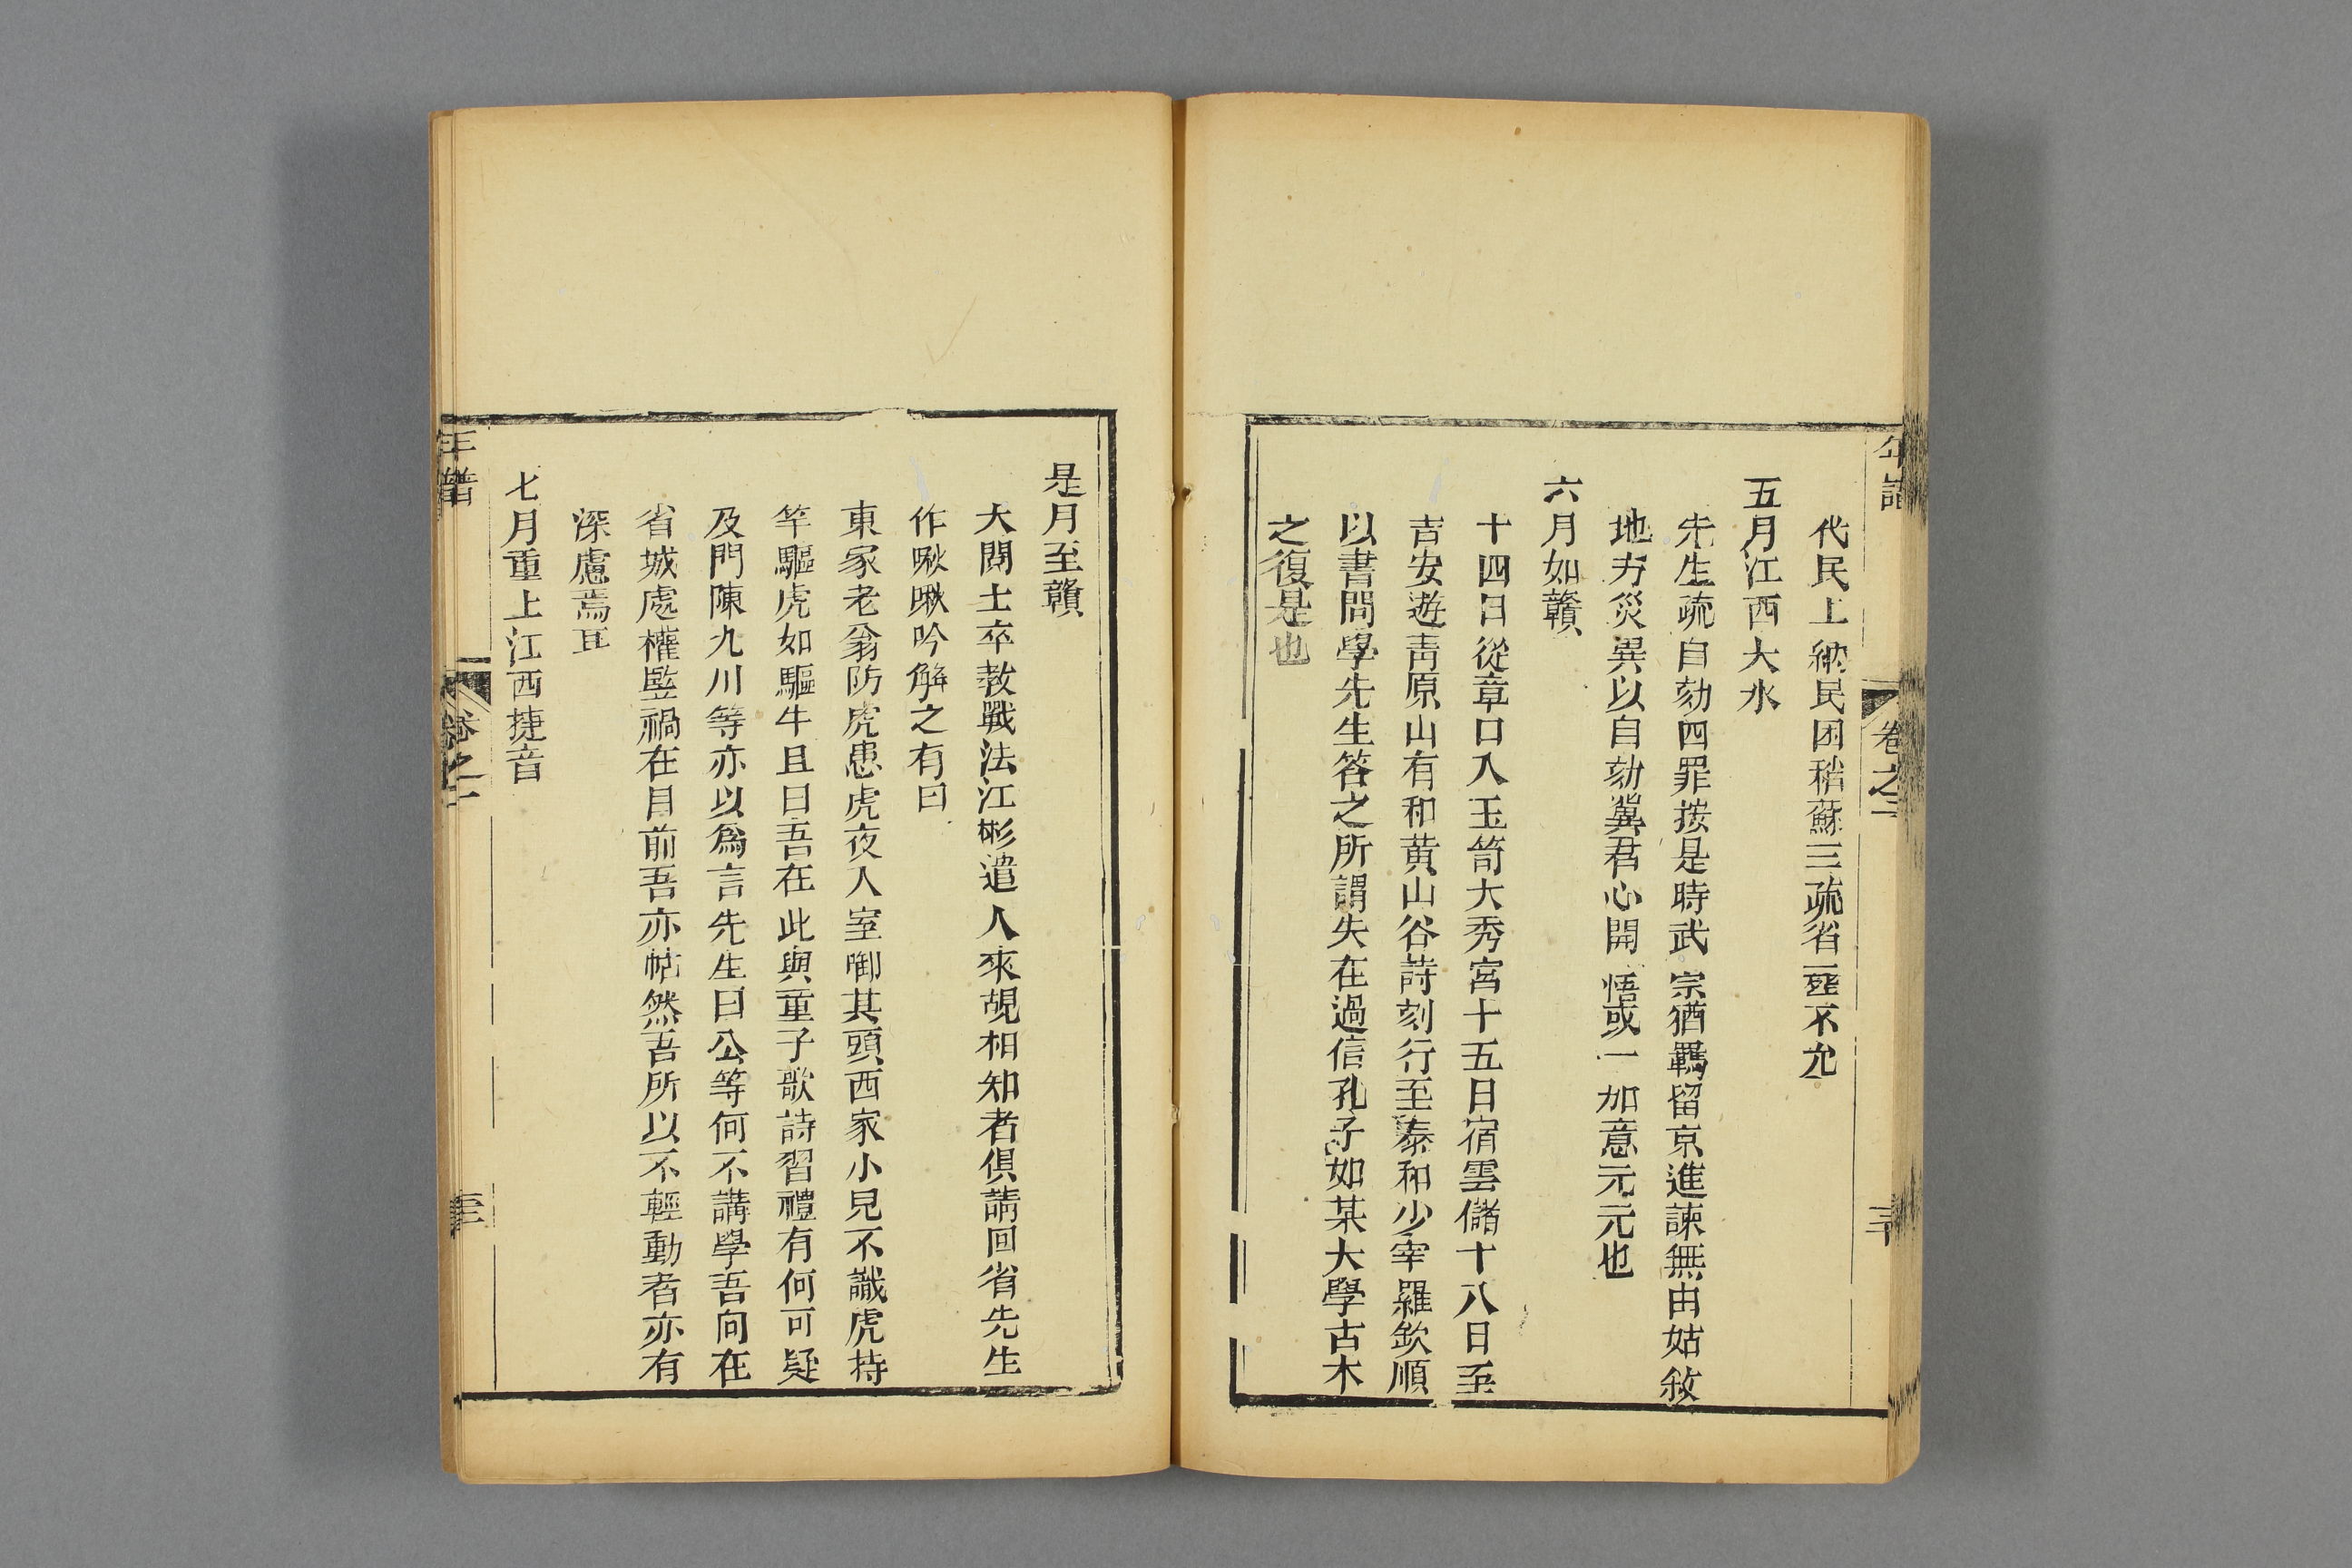 代民上納民困稍蘇三疏省葬不允
五月江西大水
先生疏自劾四罪按是時武宗猶羈留京進諫無由姑敘
地方災異以自劾冀君心開悟或一加意元元也
六月如贛
十四日從章口入玉笥大秀宮十五日宿雲儲十八日至
吉安遊青原山有和黃山谷詩刻行至泰和少宰羅欽順
以書問學先生答之所謂失在過信孔子如某大學古本
之復是也
是月至贛
大閱士卒教戰法江彬遣人來覘相知者俱請回省先生
作啾啾吟解之有曰
東家老翁防虎患虎夜入室啣其頭西家小兒不識虎持
竿驅虎如驅牛且曰吾在此與童子歌詩習禮有何可疑
及門陳九川等亦以為言先生曰公等何不講學吾向在
省城處權豎禍在目前吾亦帖然吾所以不輕動者亦有
深慮焉耳
七月重上江西捷音
年譜
卷之